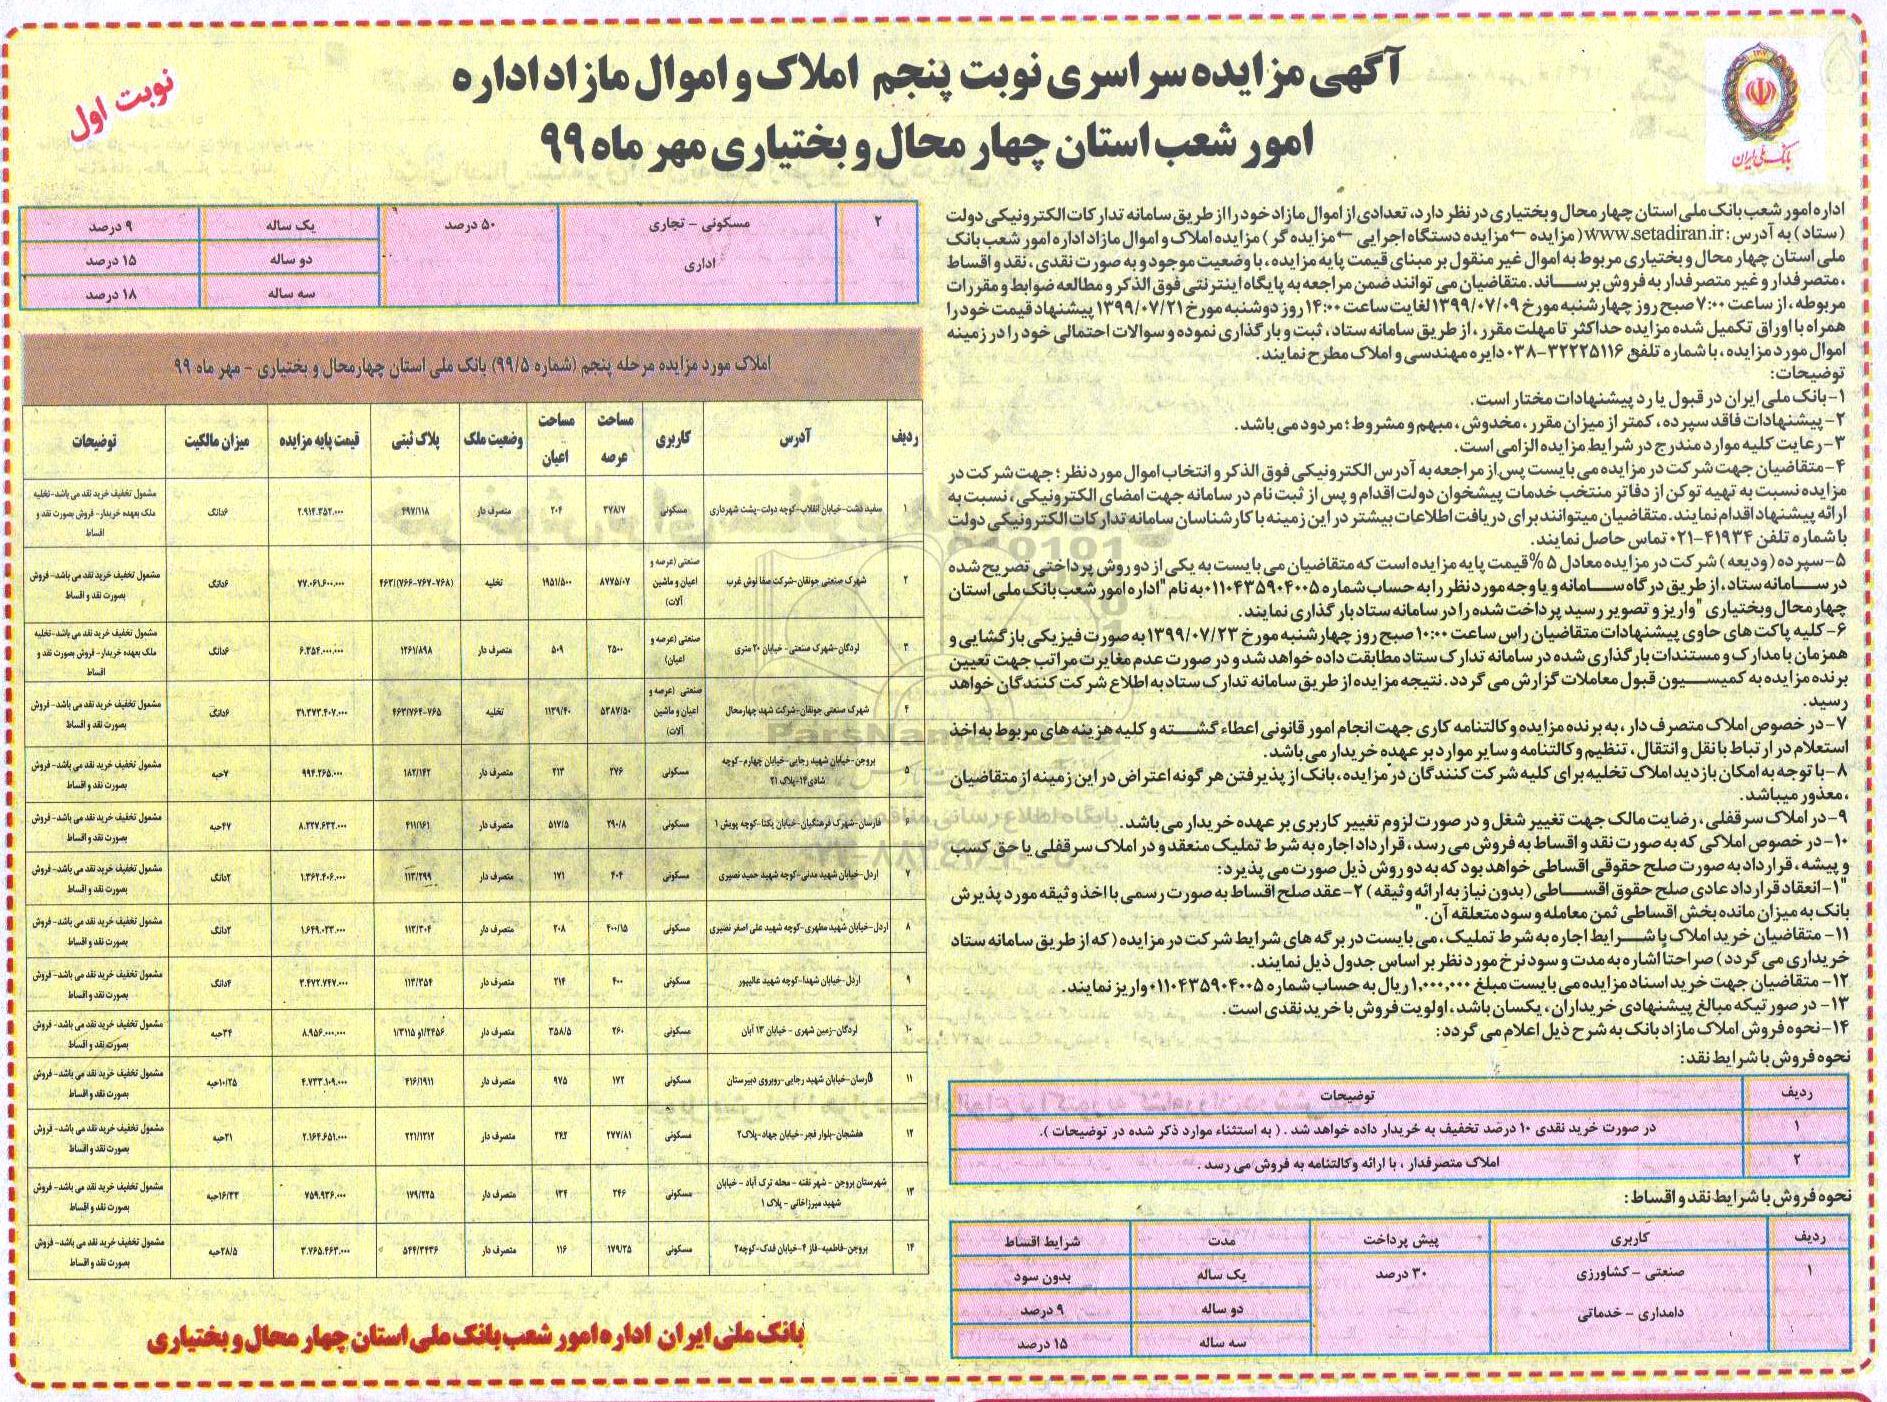 آگهی مزایده سراسری نوبت پنجم املاک و اموال مازاد اداره
امور شعب استان چهار محال و بختیاری مهر ماه ۹۹
نوبت اول
بانک ملی ایران
اداره امور شعب بانک ملی استان چهار محال و بختیاری در نظر دارد، تعدادی از اموال مازاد خود را از طریق سامانه تدارکات الکترونیکی دولت
(ستاد) به آدرس: www.setadiran.ir (مزایده ← مزایده دستگاه اجرایی ← مزایده گر) مزایده املاک و اموال مازاد اداره امور شعب بانک
ملی استان چهار محال و بختیاری مربوط به اموال غیر منقول بر مبنای قیمت پایه مزایده، با وضعیت موجود و به صورت نقدی، نقد و اقساط
، متصرفدار و غیر متصرفدار به فروش برساند. متقاضیان می توانند ضمن مراجعه به پایگاه اینترنتی فوق الذکر و مطالعه ضوابط و مقررات
مربوطه، از ساعت ۷:۰۰ صبح روز چهارشنبه مورخ ۱۳۹۹/۰۷/۰۹ لغایت ساعت ۱۴:۰۰ روز دوشنبه مورخ ۱۳۹۹/۰۷/۲۱ پیشنهاد قیمت خود را
همراه با اوراق تکمیل شده مزایده حداکثر تا مهلت مقرر، از طریق سامانه ستاد، ثبت و بارگذاری نموده و سوالات احتمالی خود را در زمینه
اموال مورد مزایده، با شماره تلفن ۳۲۲۲۵۱۱۶-۰۳۸ دایره مهندسی و املاک مطرح نمایند.
توضیحات:
۱-بانک ملی ایران در قبول یا رد پیشنهادات مختار است.
۲-پیشنهادات فاقد سپرده، کمتر از میزان مقرر، مخدوش، مبهم و مشروط؛ مردود می باشد.
۳-رعایت کلیه موارد مندرج در شرایط مزایده الزامی است.
۴-متقاضیان جهت شرکت در مزایده می بایست پس از مراجعه به آدرس الکترونیکی فوق الذکر و انتخاب اموال مورد نظر؛ جهت شرکت در
مزایده نسبت به تهیه توکن از دفاتر منتخب خدمات پیشخوان دولت اقدام و پس از ثبت نام در سامانه جهت امضای الکترونیکی، نسبت به
ارائه پیشنهاد اقدام نمایند. متقاضیان میتوانند برای دریافت اطلاعات بیشتر در این زمینه با کارشناسان سامانه تدارکات الکترونیکی دولت
با شماره تلفن ۴۱۹۳۴-۰۲۱ تماس حاصل نمایند.
۵-سپرده (ودیعه) شرکت در مزایده معادل ۵ % قیمت پایه مزایده است که متقاضیان می بایست به یکی از دو روش پرداختی تصریح شده
در سامانه ستاد، از طریق درگاه سامانه و یا وجه مورد نظر را به حساب شماره ۰۱۱۰۴۳۵۹۰۴۰۰۵ به نام "اداره امور شعب بانک ملی استان
چهارمحال وبختیاری" واریز و تصویر رسید پرداخت شده را در سامانه ستاد بارگذاری نمایند.
۶-کلیه پاکت های حاوی پیشنهادات متقاضیان راس ساعت ۱۰:۰۰ صبح روز چهارشنبه مورخ ۱۳۹۹/۰۷/۲۳ به صورت فیزیکی بازگشایی و
همزمان با مدارک و مستندات بارگذاری شده در سامانه تدارک ستاد مطابقت داده خواهد شد و در صورت عدم مغایرت مراتب جهت تعیین
برنده مزایده به کمیسیون قبول معاملات گزارش می گردد. نتیجه مزایده از طریق سامانه تدارک ستاد به اطلاع شرکت کنندگان خواهد
رسید.
۷-در خصوص املاک متصرف دار، به برنده مزایده وکالتنامه کاری جهت انجام امور قانونی اعطاء گشته و کلیه هزینه های مربوط به اخذ
استعلام در ارتباط با نقل و انتقال، تنظیم وکالتنامه و سایر موارد بر عهده خریدار می باشد.
۸-با توجه به امکان بازدید املاک تخلیه برای کلیه شرکت کنندگان در مزایده، بانک از پذیرفتن هر گونه اعتراض در این زمینه از متقاضیان
، معذور میباشد.
۹-در املاک سرقفلی، رضایت مالک جهت تغییر شغل و در صورت لزوم تغییر کاربری بر عهده خریدار می باشد.
۱۰-در خصوص املاکی که به صورت نقد و اقساط به فروش می رسد، قرارداد اجاره به شرط تملیک منعقد و در املاک سرقفلی یا حق کسب
و پیشه، قرارداد به صورت صلح حقوقی اقساطی خواهد بود که به دو روش ذیل صورت می پذیرد:
"۱-انعقاد قرارداد عادی صلح حقوق اقساطی (بدون نیاز به ارائه وثیقه) ۲-عقد صلح اقساط به صورت رسمی با اخذ وثیقه مورد پذیرش
بانک به میزان مانده بخش اقساطی ثمن معامله و سود متعلقه آن."
۱۱- متقاضیان خرید املاک با شرایط اجاره به شرط تملیک، می بایست در برگه های شرایط شرکت در مزایده (که از طریق سامانه ستاد
خریداری می گردد) صراحتا اشاره به مدت و سود نرخ مورد نظر بر اساس جدول ذیل نمایند.
۱۲- متقاضیان جهت خرید اسناد مزایده می بایست مبلغ ۱,۰۰۰,۰۰۰ ریال به حساب شماره ۰۱۱۰۴۳۵۹۰۴۰۰۵ واریز نمایند.
۱۳- در صورتیکه مبالغ پیشنهادی خریداران، یکسان باشد، اولویت فروش با خرید نقدی است.
۱۴-نحوه فروش املاک مازاد بانک به شرح ذیل اعلام می گردد:
نحوه فروش با شرایط نقد:
ردیف توضیحات
۱ در صورت خرید نقدی ۱۰ درصد تخفیف به خریدار داده خواهد شد. (به استثناء موارد ذکر شده در توضیحات).
۲ املاک متصرفدار، با ارائه وکالتنامه به فروش می رسد.
نحوه فروش با شرایط نقد و اقساط:
ردیف کاربری پیش پرداخت مدت شرایط اقساط
۱ صنعتی - کشاورزی ۳۰ درصد یک ساله بدون سود
دامداری - خدماتی دو ساله ۹ درصد
سه ساله ۱۵ درصد
۲ مسکونی - تجاری ۵۰ درصد یک ساله ۹ درصد
اداری دو ساله ۱۵ درصد
سه ساله ۱۸ درصد
املاک مورد مزایده مرحله پنجم (شماره ۹۹/۵) بانک ملی استان چهارمحال و بختیاری - مهر ماه ۹۹
ردیف آدرس کاربری مساحت عرصه مساحت اعیان وضعیت ملک پلاک ثبتی قیمت پایه مزایده میزان مالکیت توضیحات
۱ سفید دشت-خیابان انقلاب-کوچه دولت-پشت شهرداری مسکونی ۲۷۸/۷ ۲۰۴ متصرف دار ۴۹۷/۱۱۸ ۲.۹۱۴.۳۵۲.۰۰۰ ۶دانگ مشمول تخفیف خرید نقد می باشد-تخلیه ملک بعهده خریدار- فروش بصورت نقد و اقساط
۲ شهرک صنعتی جونقان-شرکت صفا نوش غرب صنعتی (عرصه و اعیان و ماشین آلات) ۸۷۷۵/۰۷ ۱۹۵۱/۵۰۰ تخلیه ۴۶۳/(۷۶۶-۷۶۷-۷۶۸) ۷۷.۰۶۱.۶۰۰.۰۰۰ ۶دانگ مشمول تخفیف خرید نقد می باشد- فروش بصورت نقد و اقساط
۳ لردگان-شهرک صنعتی- خیابان ۲۰ متری صنعتی (عرصه و اعیان) ۲۵۰۰ ۵۰۹ متصرف دار ۱۲۶۱/۸۹۸ ۶.۲۵۴.۰۰۰.۰۰۰ ۶دانگ مشمول تخفیف خرید نقد می باشد-تخلیه ملک بعهده خریدار- فروش بصورت نقد و اقساط
۴ شهرک صنعتی جونقان-شرکت شهد چهارمحال صنعتی (عرصه و اعیان و ماشین آلات) ۵۳۸۷/۵۰ ۱۱۳۹/۴۰ تخلیه ۴۶۳/۷۶۴-۷۶۵ ۳۱.۳۷۳.۴۰۷.۰۰۰ ۶دانگ مشمول تخفیف خرید نقد می باشد- فروش بصورت نقد و اقساط
۵ بروجن-خیابان شهید رجایی-خیابان چهارم-کوچه شادی۱۴-پلاک ۲۱ مسکونی ۲۷۶ ۲۱۳ متصرف دار ۱۸۲/۱۴۲ ۹۹۴.۲۶۵.۰۰۰ ۷حبه مشمول تخفیف خرید نقد می باشد- فروش بصورت نقد و اقساط
۶ فارسان-شهرک فرهنگیان-خیابان یکتا-کوچه پویش ۱ مسکونی ۲۹۰/۸ ۵۱۷/۵ متصرف دار ۴۱۱/۱۶۱ ۸.۲۲۷.۶۳۲.۰۰۰ ۴۷حبه مشمول تخفیف خرید نقد می باشد- فروش بصورت نقد و اقساط
۷ اردل-خیابان شهید مدنی-کوچه شهید حمید نصیری مسکونی ۴۰۴ ۱۷۱ متصرف دار ۱۱۳/۲۹۹ ۱.۳۶۲.۴۰۶.۰۰۰ ۲دانگ مشمول تخفیف خرید نقد می باشد- فروش بصورت نقد و اقساط
۸ اردل-خیابان شهید مطهری-کوچه شهید علی اصغر نصیری مسکونی ۴۰۰/۱۵ ۲۰۸ متصرف دار ۱۱۳/۳۰۴ ۱.۶۴۹.۰۳۳.۰۰۰ ۲دانگ مشمول تخفیف خرید نقد می باشد- فروش بصورت نقد و اقساط
۹ اردل-خیابان شهدا-کوچه شهید عالیپور مسکونی ۴۰۰ ۲۱۴ متصرف دار ۱۱۳/۳۵۴ ۳.۴۷۲.۷۴۷.۰۰۰ ۴دانگ مشمول تخفیف خرید نقد می باشد- فروش بصورت نقد و اقساط
۱۰ لردگان-زمین شهری - خیابان ۱۳ آبان مسکونی ۲۶۰ ۳۵۸/۵ متصرف دار ۱/۲۴۵۶و ۱/۳۱۱۵ ۸.۹۵۶.۰۰۰.۰۰۰ ۳۴حبه مشمول تخفیف خرید نقد می باشد- فروش بصورت نقد و اقساط
۱۱ فارسان-خیابان شهید رجایی-روبروی دبیرستان مسکونی ۱۷۲ ۹۷۵ متصرف دار ۴۱۶/۱۹۱۱ ۴.۷۳۳.۱۰۹.۰۰۰ ۱۰/۲۵حبه مشمول تخفیف خرید نقد می باشد- فروش بصورت نقد و اقساط
۱۲ هفشجان-بلوار فجر-خیابان جهاد-پلاک۲ مسکونی ۲۷۷/۸۱ ۲۴۲ متصرف دار ۲۲۱/۱۲۱۲ ۲.۱۶۴.۶۵۱.۰۰۰ ۲۱حبه مشمول تخفیف خرید نقد می باشد- فروش بصورت نقد و اقساط
۱۳ شهرستان بروجن - شهر نقنه - محله ترک آباد - خیابان شهید میرزاخانی - پلاک ۱ مسکونی ۲۴۶ ۱۲۴ متصرف دار ۱۷۹/۲۲۵ ۷۵۹.۹۳۶.۰۰۰ ۱۶/۳۳حبه مشمول تخفیف خرید نقد می باشد- فروش بصورت نقد و اقساط
۱۴ بروجن-فاطمیه-فاز ۴-خیابان فدک-کوچه۲ مسکونی ۱۷۹/۲۵ ۱۱۶ متصرف دار ۵۴۴/۳۴۳۶ ۳.۷۶۵.۴۶۳.۰۰۰ ۲۸/۵حبه مشمول تخفیف خرید نقد می باشد- فروش بصورت نقد و اقساط
بانک ملی ایران اداره امور شعب بانک ملی استان چهار محال و بختیاری
ParsNamadData